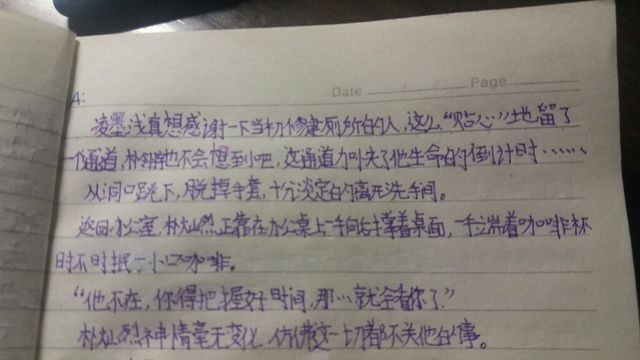 Date / / Page
A:
凌墨浅真想感谢一下当初修建厕所的人，这么“贴心”地留了
一个通道，朴 也不会想到吧，这通道加快了他生命的倒计时……
从洞口跳下，脱掉手套，十分淡定的离开洗手间。
返回办公室，朴灿烈正靠在办公桌上一手向后撑着桌面，一手端着咖啡杯
时不时抿一小口咖啡。
“他不在，你得把握好时间，那…就全看你了。”
朴灿烈神情毫无变化，仿佛这一切都不关他的事。